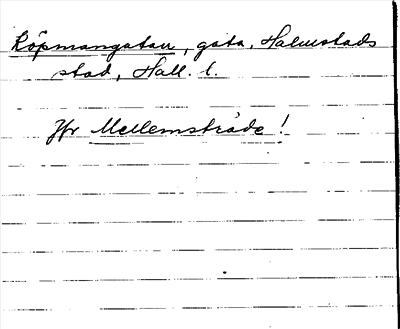 Köpmangatan, gata, Halmstads
stad, Hall. l.
Jfr Mellemstræde!